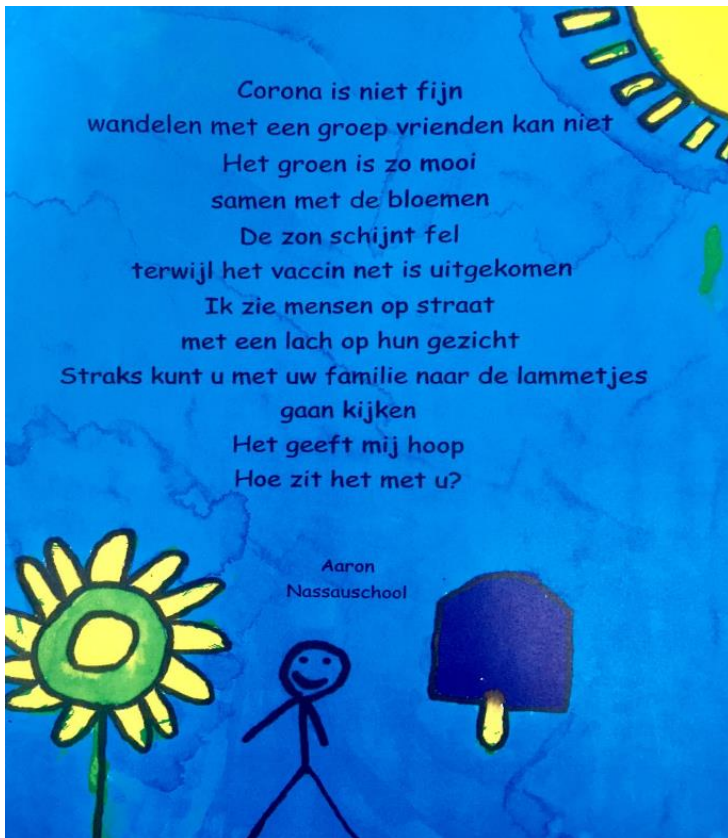 Corona is niet fijn
wandelen met een groep vrienden kan niet
Het groen is zo mooi
samen met de bloemen
De zon schijnt fel
terwijl het vaccin net is uitgekomen
Ik zie mensen op straat
met een lach op hun gezicht
Straks kunt u met uw familie naar de lammetjes
gaan kijken
Het geeft mij hoop
Hoe zit het met u?
Aaron
Nassauschool